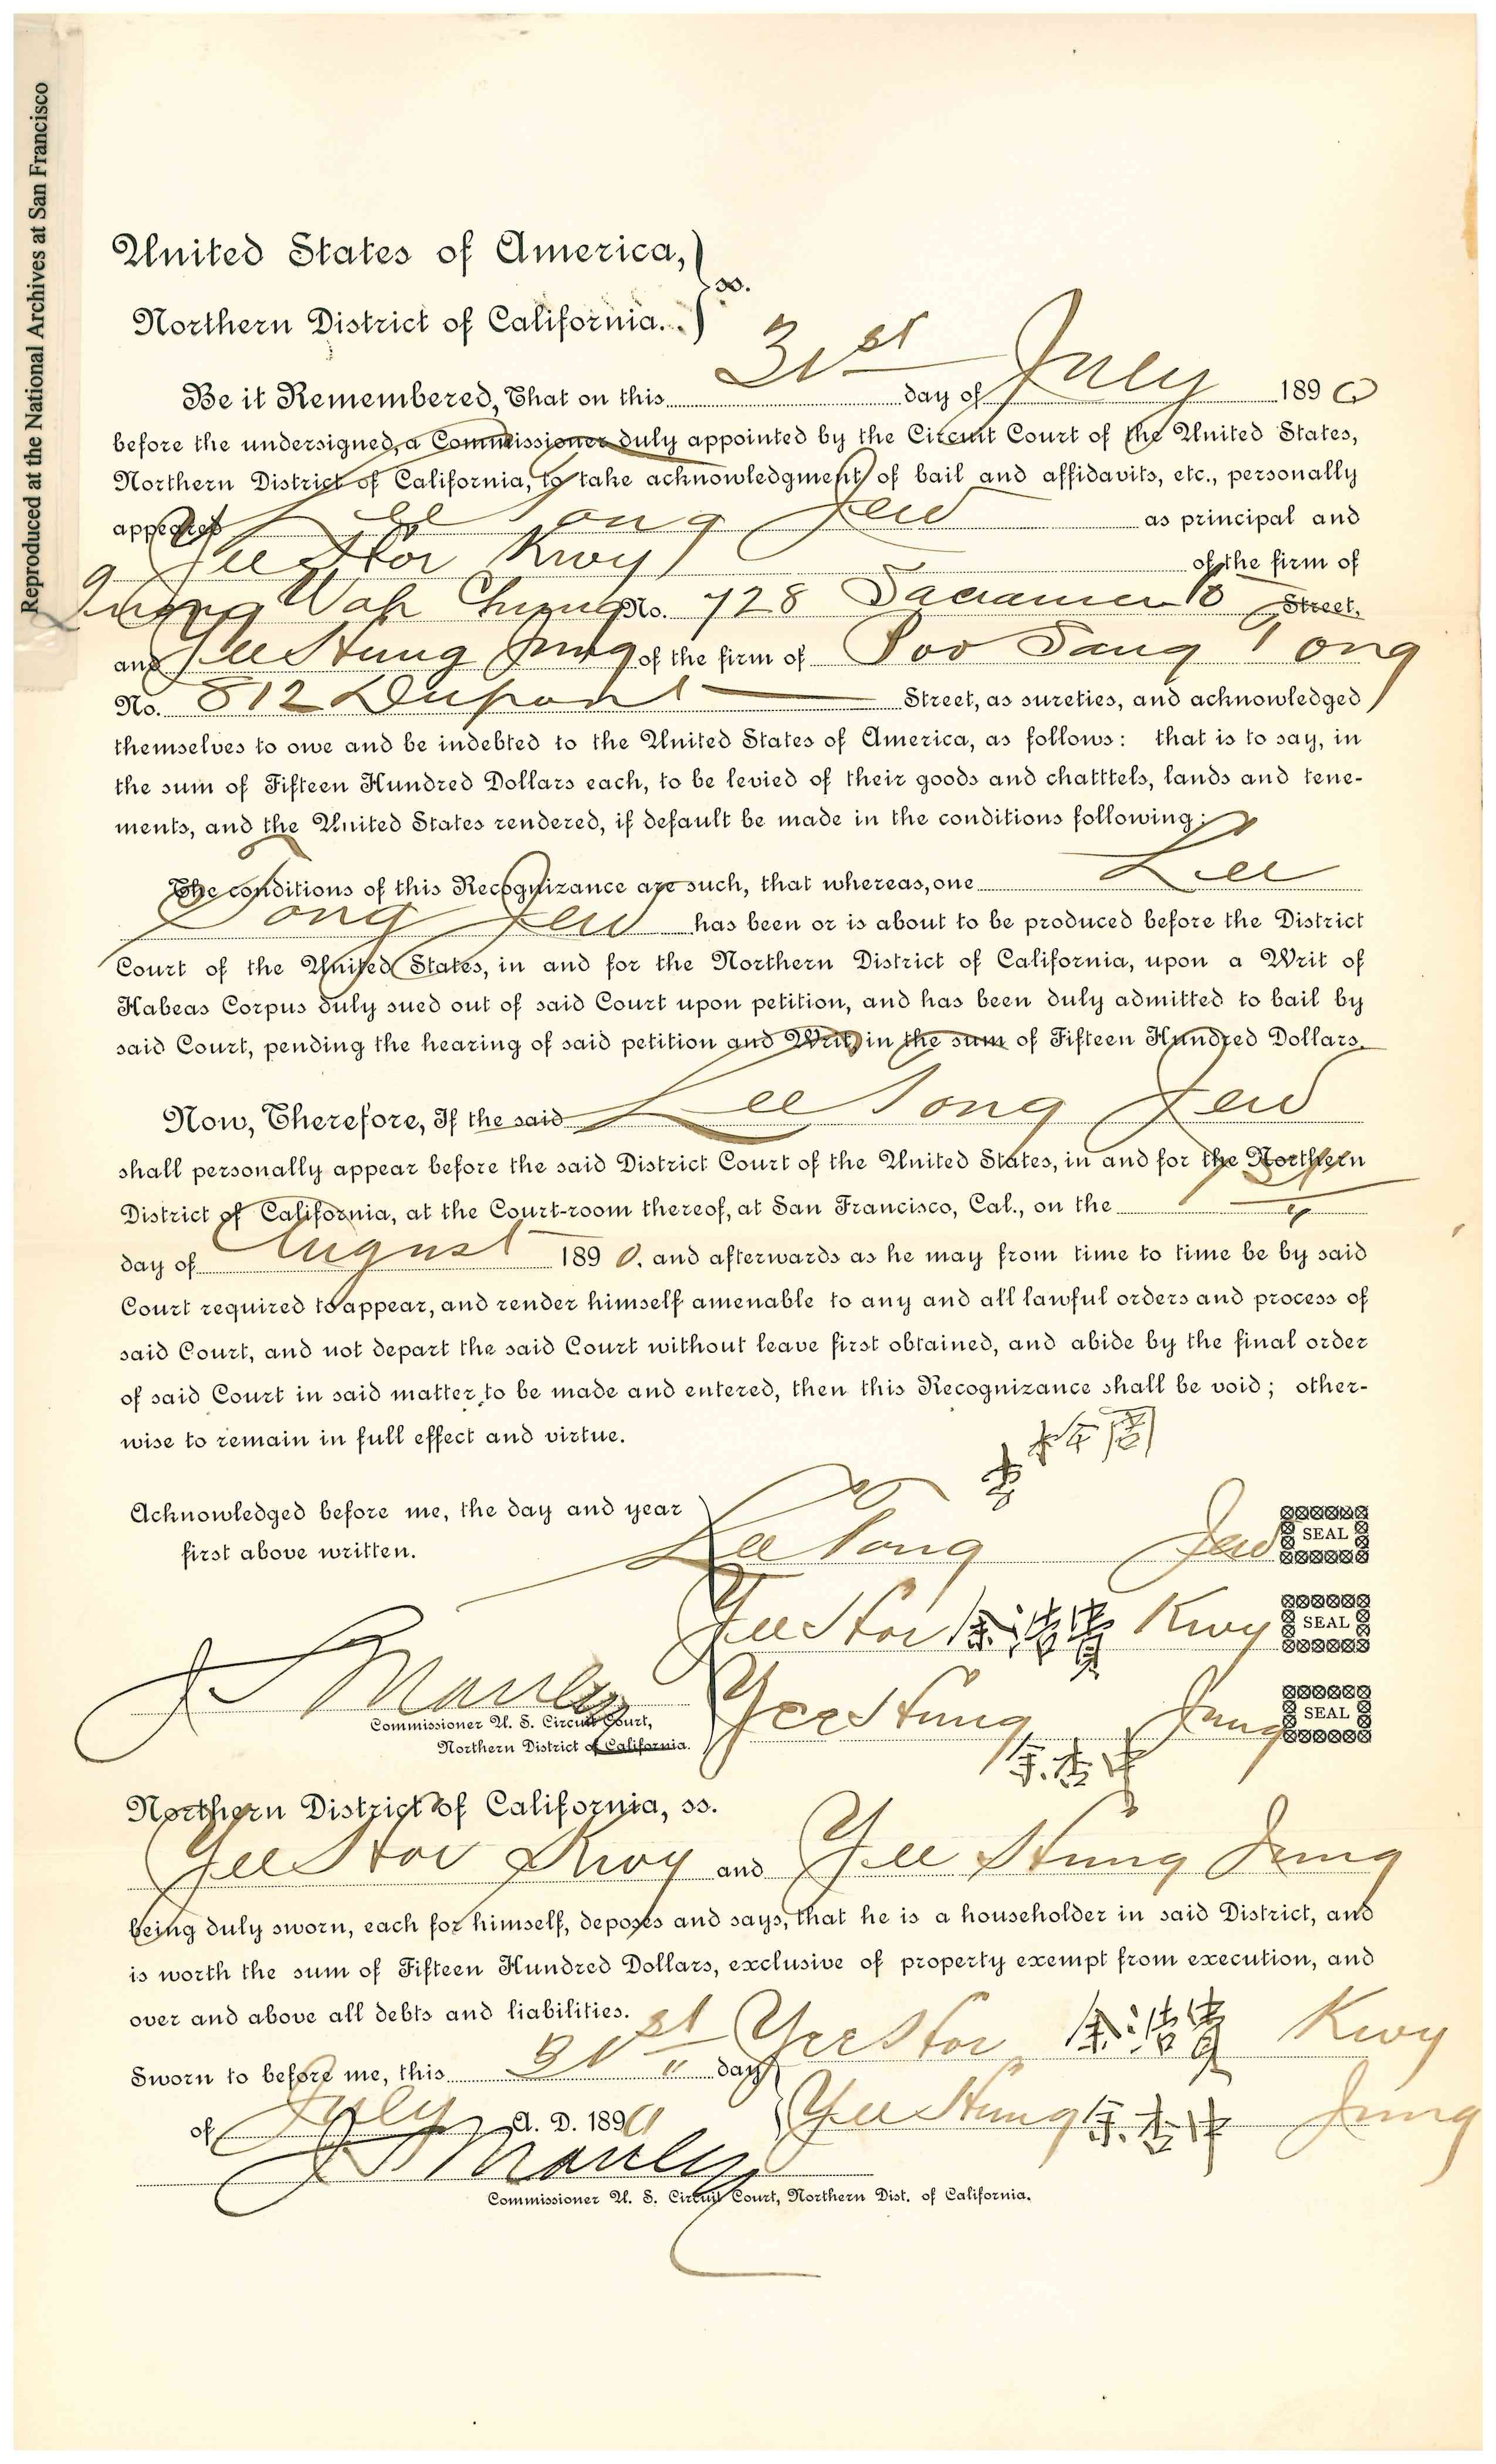 Reproduced at the National Archives at San Francisco
United States of America,
ss.
Northern District of California.
Be it Remembered, That on this 31st day of July 1890
before the undersigned, a Commissioner duly appointed by the Circuit Court of the United States,
Northern District of California, to take acknowledgment of bail and affidavits, etc., personally
appeared Lee Tong Jew as principal and
Yee Hor Kwy of the firm of
Quong Wah Chung No. 728 Sacramento Street,
and Yee Hung Jung of the firm of Poo Sang Tong
No. 812 Dupont Street, as sureties, and acknowledged
themselves to owe and be indebted to the United States of America, as follows: that is to say, in
the sum of Fifteen Hundred Dollars each, to be levied of their goods and chatttels, lands and tene-
ments, and the United States rendered, if default be made in the conditions following:
The conditions of this Recognizance are such, that whereas, one Lee
Tong Jew has been or is about to be produced before the District
Court of the United States, in and for the Northern District of California, upon a Writ of
Habeas Corpus duly sued out of said Court upon petition, and has been duly admitted to bail by
said Court, pending the hearing of said petition and Writ, in the sum of Fifteen Hundred Dollars.
Now, Therefore, If the said Lee Tong Jew
shall personally appear before the said District Court of the United States, in and for the Northern
District of California, at the Court-room thereof, at San Francisco, Cal., on the 1st
day of August 1890, and afterwards as he may from time to time be by said
Court required to appear, and render himself amenable to any and all lawful orders and process of
said Court, and not depart the said Court without leave first obtained, and abide by the final order
of said Court in said matter to be made and entered, then this Recognizance shall be void; other-
wise to remain in full effect and virtue.
李
Acknowledged before me, the day and year
first above written.
Lee Tong Jew SEAL
Yee Hor 余浩貴 Kwy SEAL
J S Manley
Commissioner U. S. Circuit Court,
Northern District of California.
Yee Hung Jung SEAL
余杏中
Northern District of California, ss.
Yee Hor Kwy and Yee Hung Jung
being duly sworn, each for himself, deposes and says, that he is a householder in said District, and
is worth the sum of Fifteen Hundred Dollars, exclusive of property exempt from execution, and
over and above all debts and liabilities.
Yee Hor 余浩貴 Kwy
Sworn to before me, this 31st day
of July A. D. 1890
Yee Hung 余杏中 Jung
J S Manley
Commissioner U. S. Circuit Court, Northern Dist. of California.